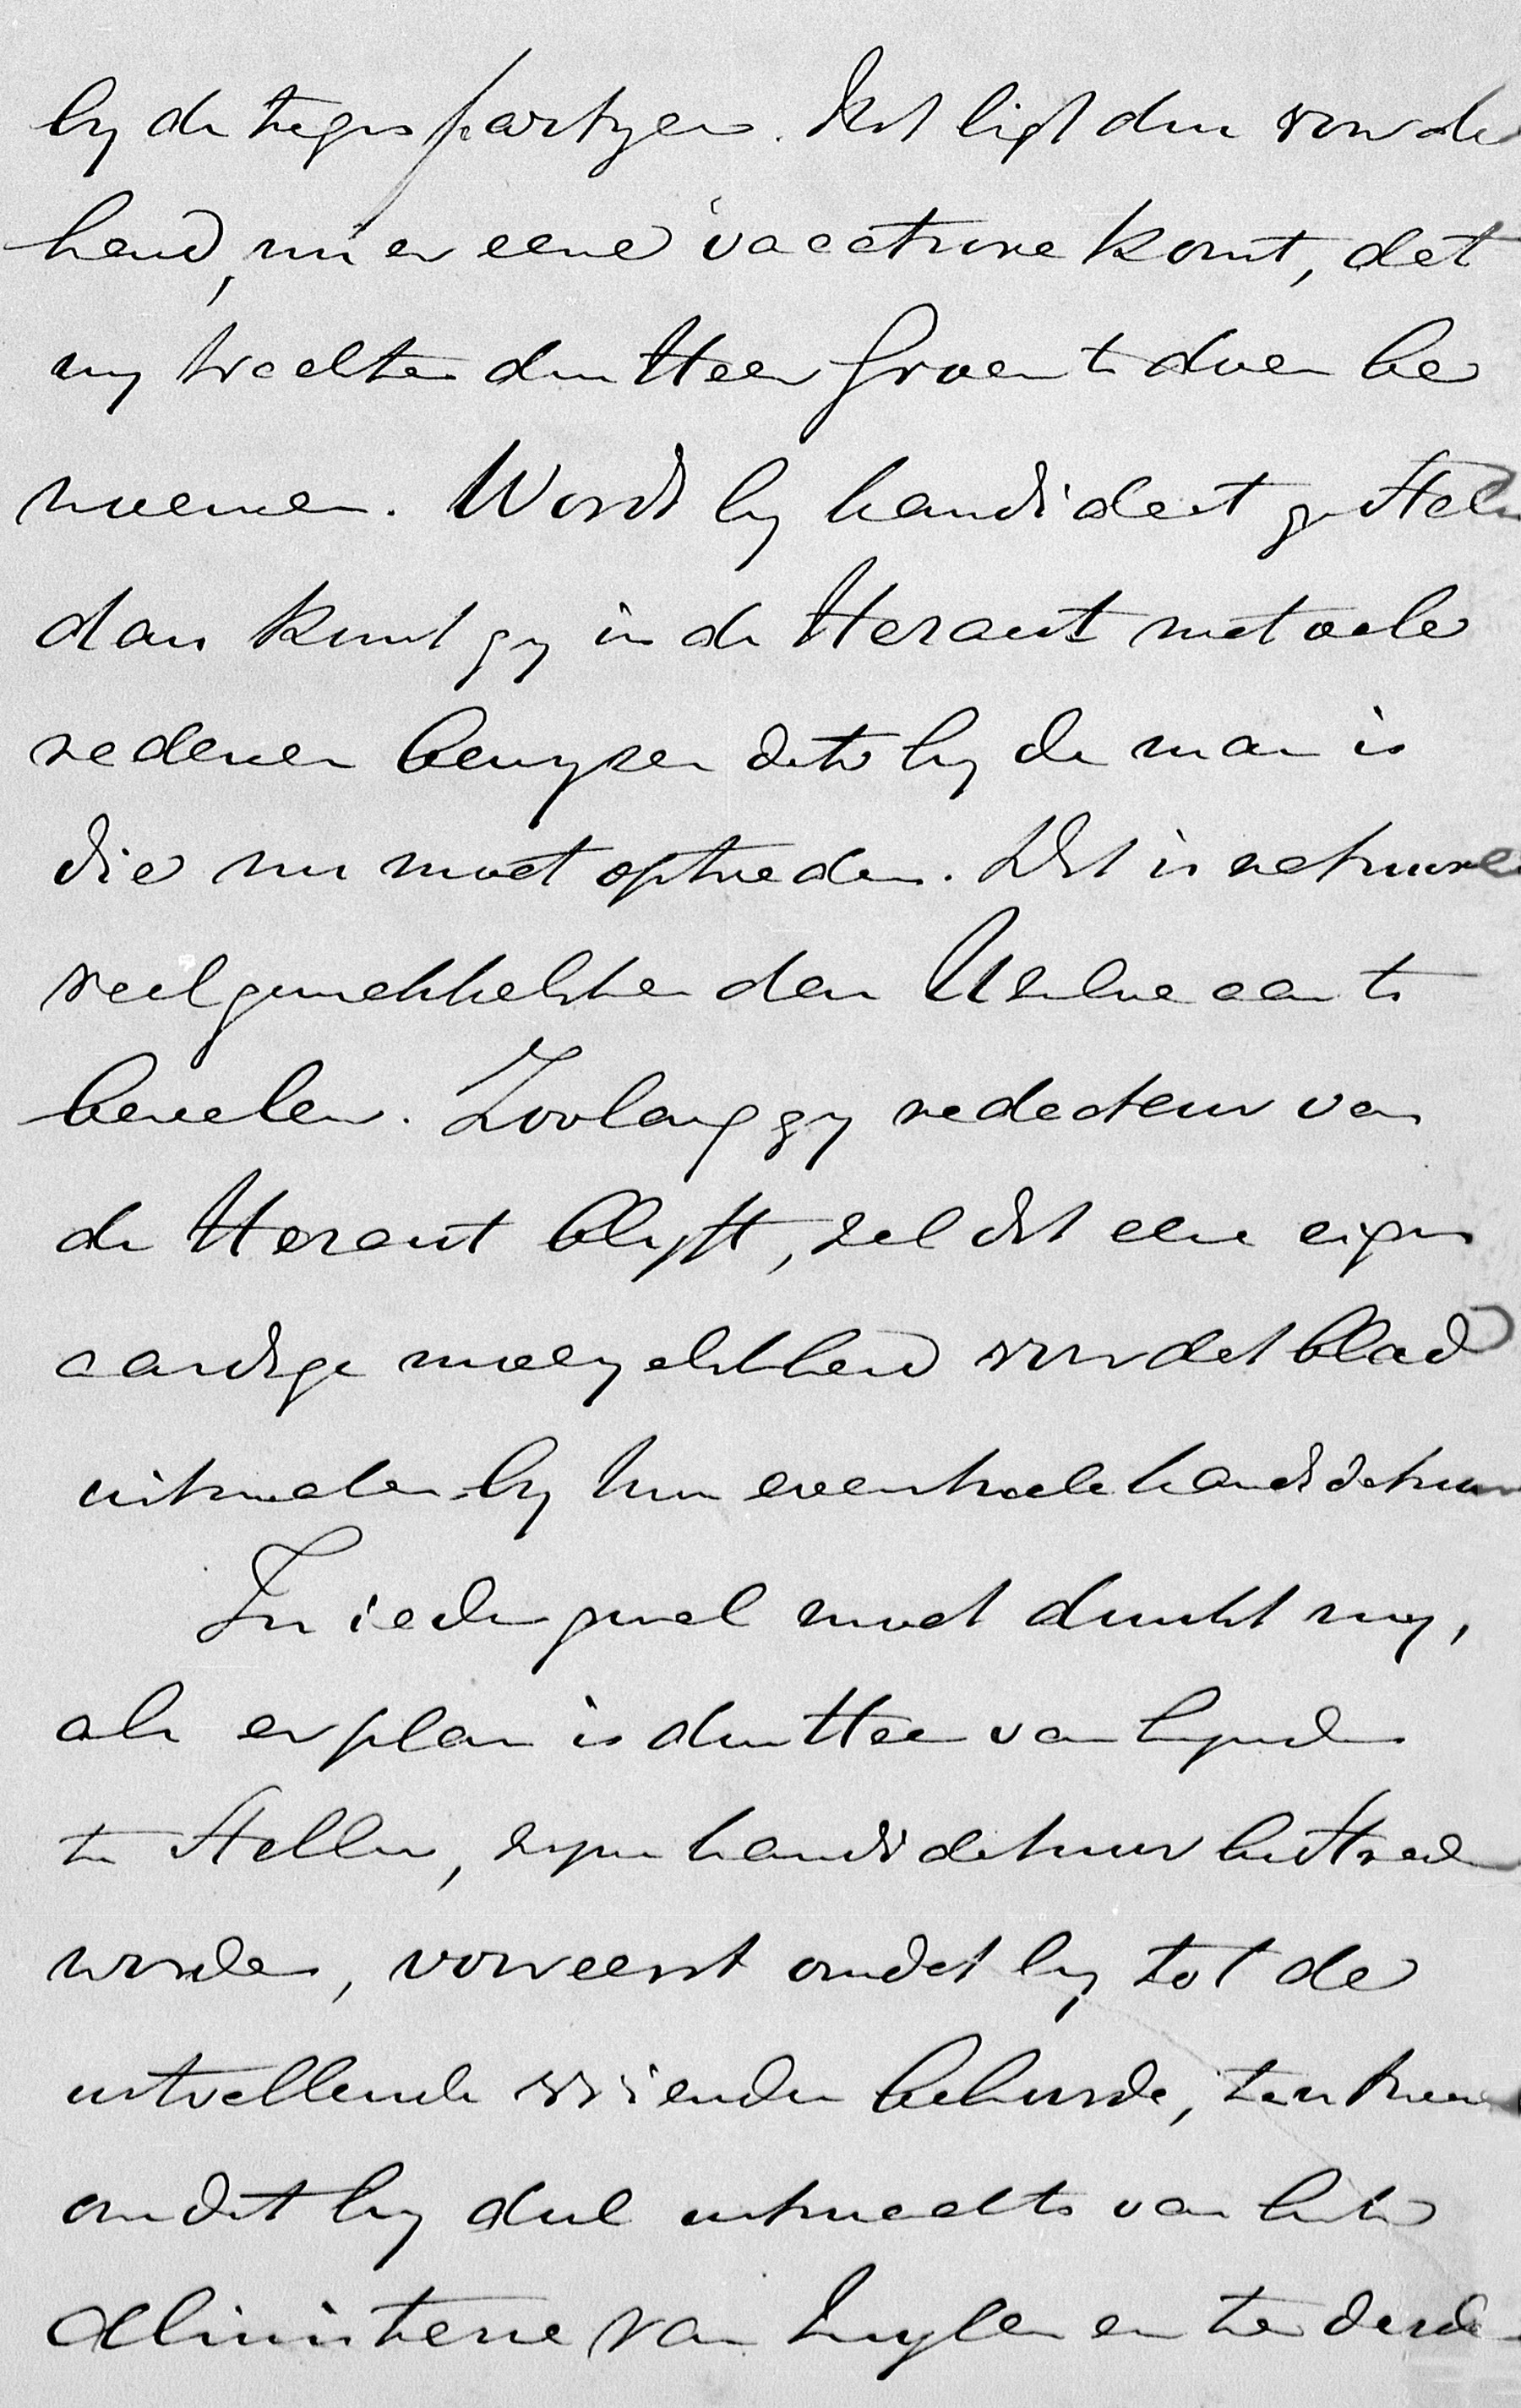 by de tegenpartyen. Het ligt dus voor de
hand, nu er eene vacature komt, dat
wy trachten den Heer Groen te doen be
noemen. Wordt hy kandidaat gesteld
dan kunt gy in de Heraut met vele
redenen bewyzen dat hy de man is
die nu moet optreden. Dit is natuurl
veel gemakkelyker dan Uzelve aan te
bevelen. Zoolang gy redacteur van
de Heraut blyft, zal dit eene eigen
aardige moeyelykheid voor dat blad
uitmaken by Uw eventueele kandidatuur
In ieder geval moet dunkt my,
als er plan is den Heer van Lynden
te stellen, zyne kandidatuur bestreden
worden, vooreerst omdat hy tot de
uitvallende vrienden behoorde, ten tweede
omdat hy deel uitmaakte van het
Ministerie van Zuylen en ten derde